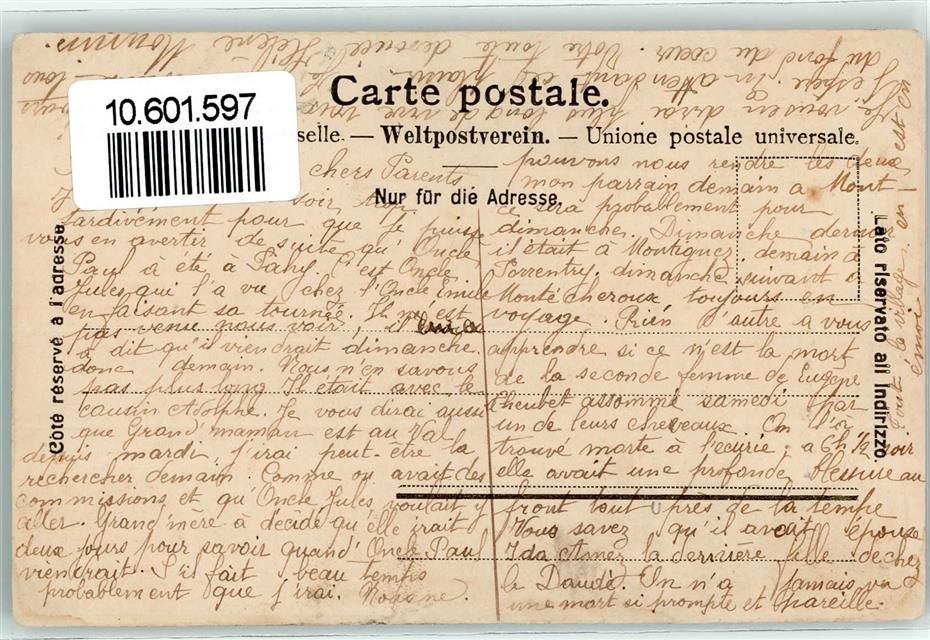 10.601.597
Carte postale.
selle. — Weltpostverein. — Unione postale universale.
Nur für die Adresse.
Côté réservé à l'adresse
Lato riservato all indirizzo.
chers Parents
soir
tardivement pour que je puisse
vous en avertir de suite qu'Oncle
Paul à été à Fahy. C'est Oncle
Jules qui l'a vu chez l'Oncle Emile
en faisant sa tournée. Il ne est
pas venu nous voir, il
à dit qu'il viendrait dimanche.
donc demain. Nous n'en savons
pas plus long Il était avec le
cousin Adolphe. Je vous dirai aussi
que Grand'maman est au Val
depuis mardi. J'irai peut-être la
rechercher demain. Comme on avait des
commissions et qu'Oncle Jules voulait y
aller. Grand'mère à décidé qu'elle irait
deux jours pour savoir quand Oncle Paul
viendrait. S'il fait beau temps
probablement que j'irai.
pouvons nous rendre les deux
mon parrain demain a Mont-
ce sera probablement pour
dimanche. Dimanche dernier
il était à Montignez, demain à
Porrentry, dimanche suivant à
Montécheroux, toujours en
voyage. Rien d'autre a vous
apprendre si ce n'est la mort
de la seconde femme de Eugène
Cheubet assommé samedi par
un de leurs chevaux. On l'a
trouvé morte à l'écurie, a 6h 1/2 soir
elle avait une profonde blessure au
front tout près de la tempe
Vous savez qu'il avait épousé
Ida Amez la dernière fille de chez
la Daude. On n'a jamais vu
une mort si prompte et pareille.
Tout le village en est en
émoi.
Je vous en dirai plus long de vive voix
J'espère. En attendant
du fond du coeur. Votre toute dévouée Hélène